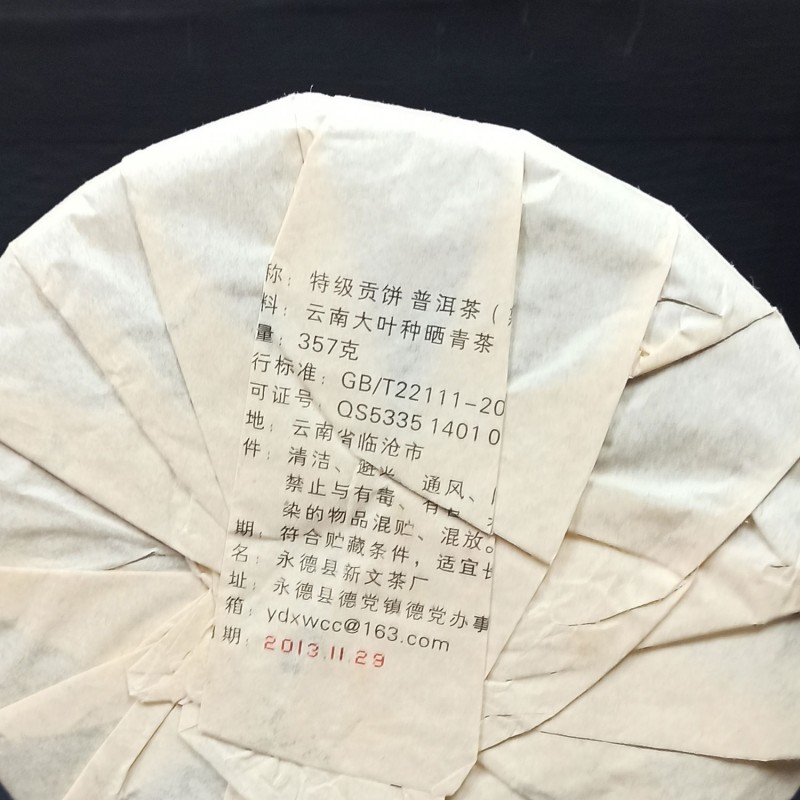 称：特级贡饼 普洱茶（
料：云南大叶种晒青茶
量：357克
行标准：GB/T22111-20
可证号：QS5335 1401 0
地：云南省临沧市
件：清洁、避光、通风、
禁止与有毒、有
染的物品混贮、混放。
期：符合贮藏条件，适宜长
名：永德县新文茶厂
址：永德县德党镇德党办事
箱：ydxwcc@163.com
期：2013.11.29